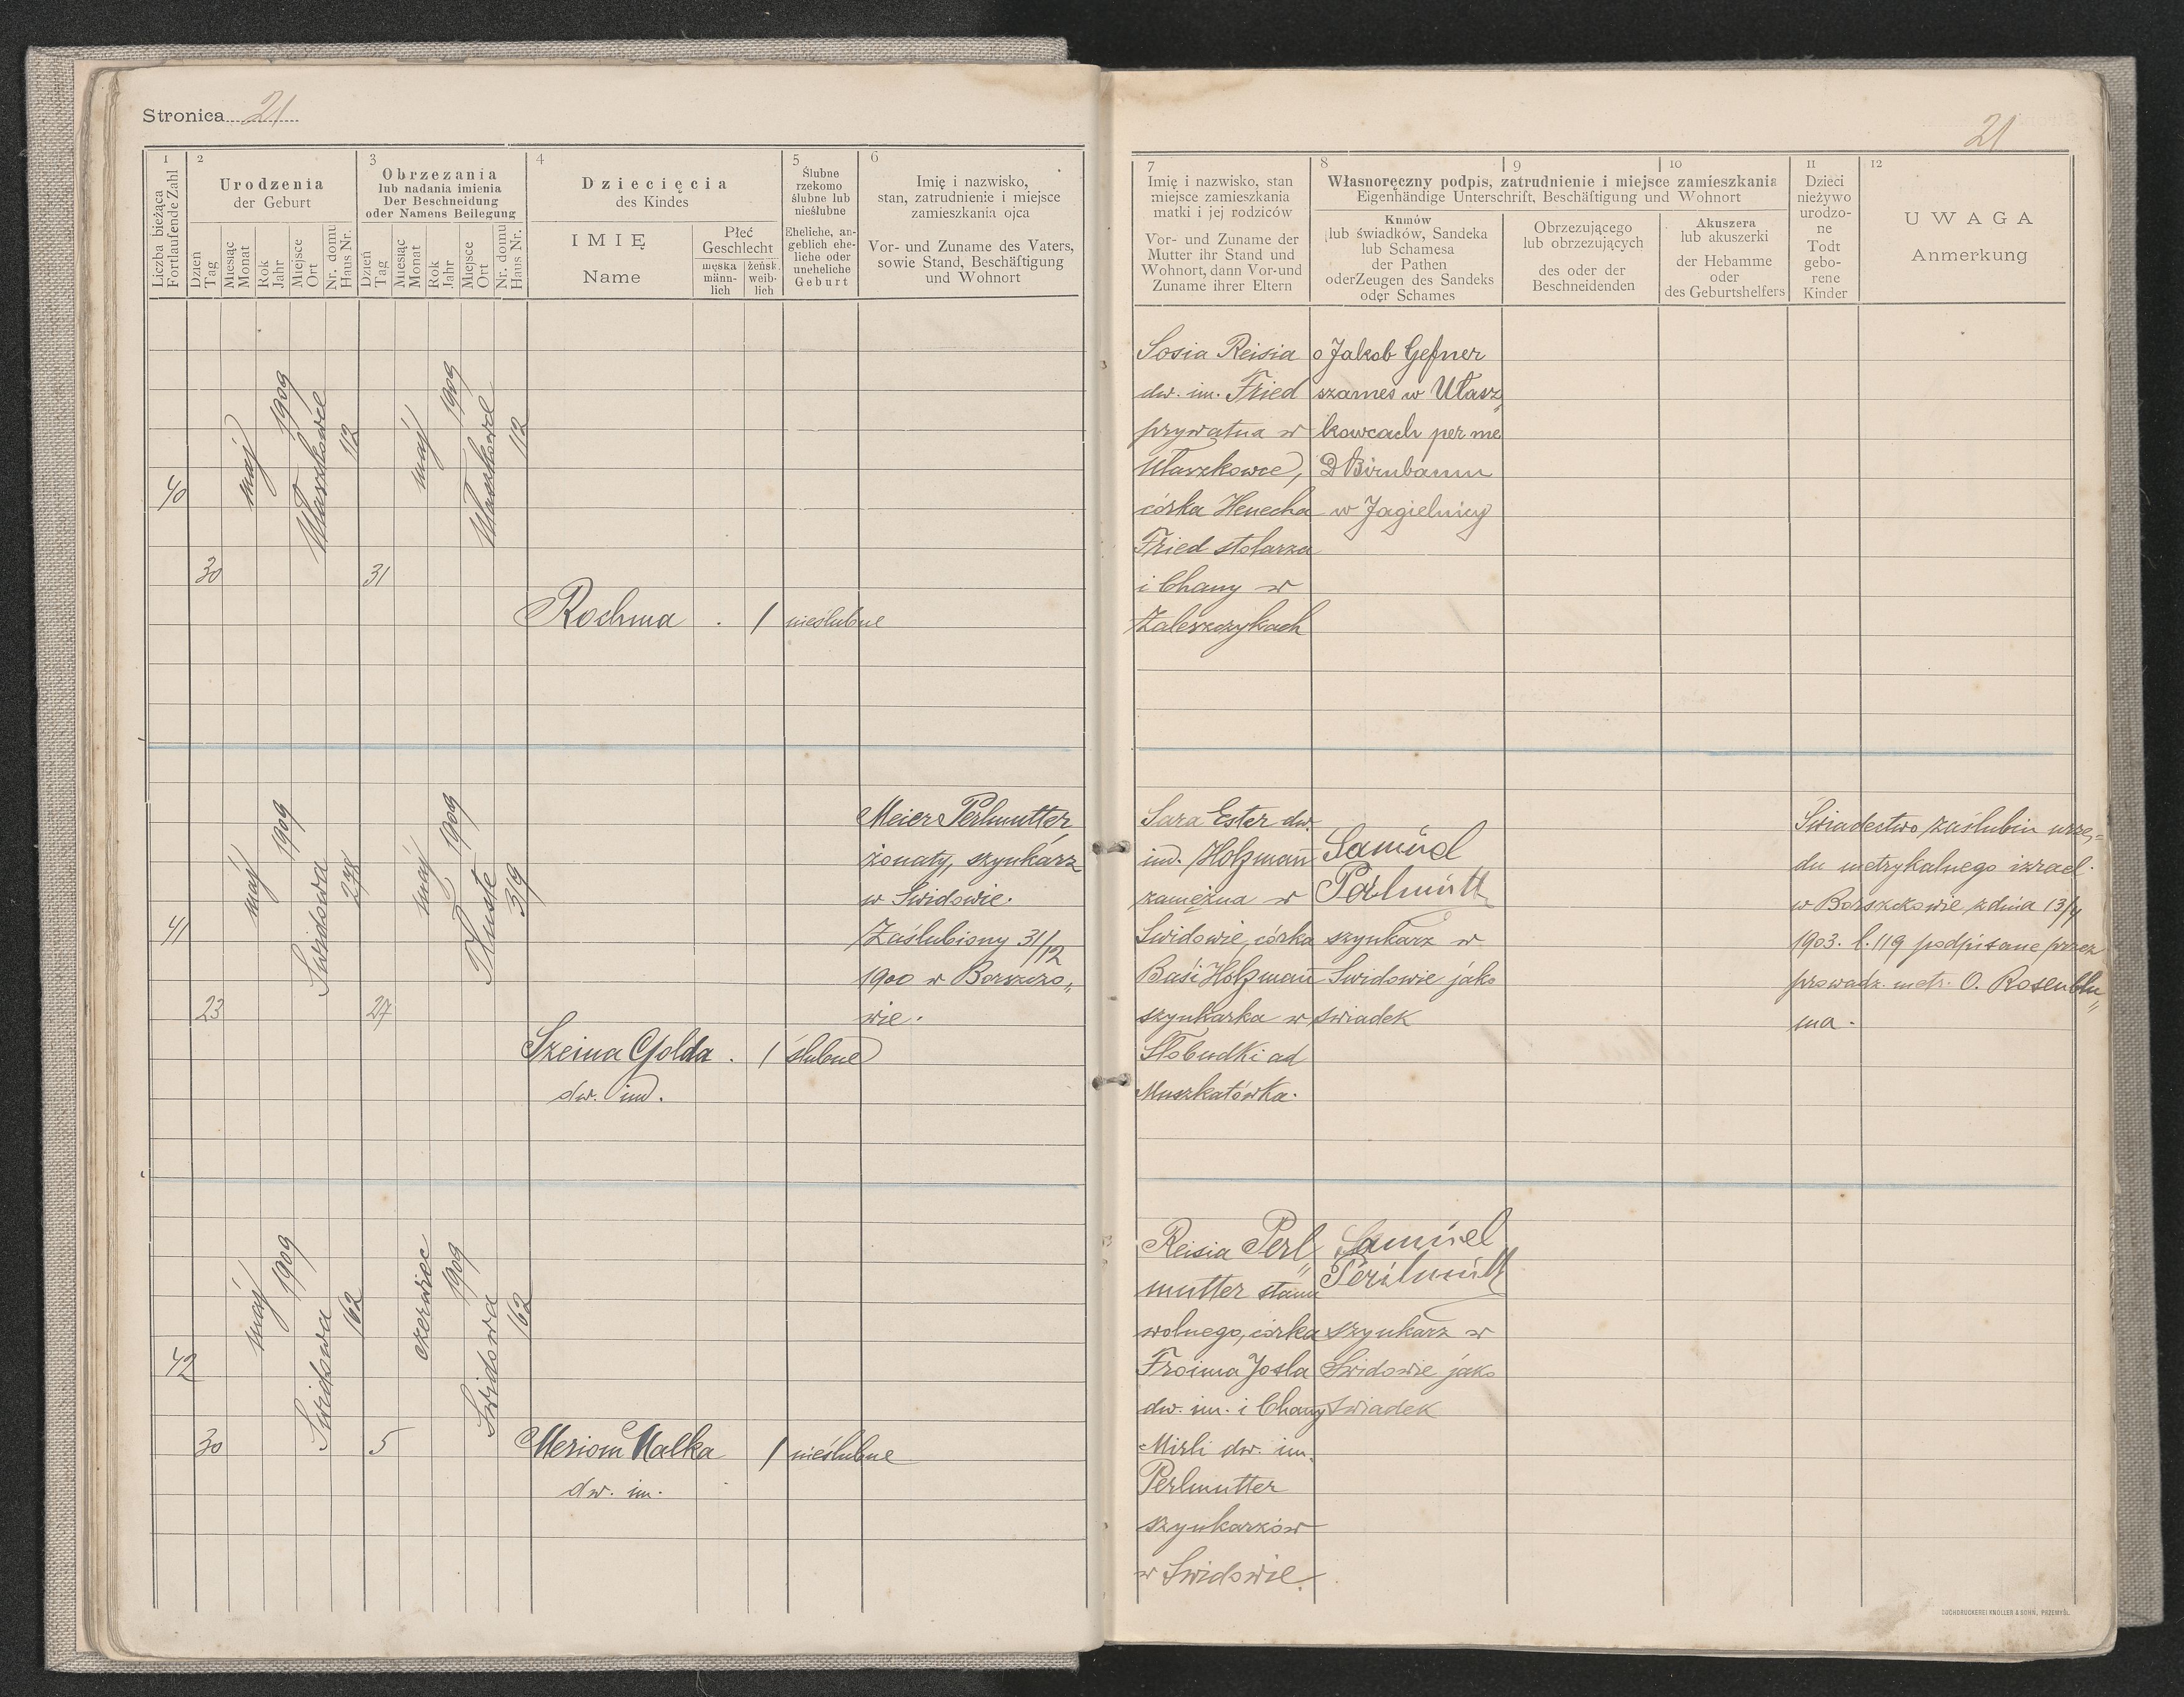 Stronica 21
21
1
Liczba bieżąca
Fortlaufende Zahl
2
Urodzenia
der Geburt
Dzień
Tag
Miesiąc
Monat
Rok
Jahr
Miejsce
Ort
Nr. domu
Haus Nr.
3
Obrzezania
lub nadania imienia
Der Beschneidung
oder Namens Beilegung
Dzień
Tag
Miesiąc
Monat
Rok
Jahr
Miejsce
Ort
Nr. domu
Haus Nr.
4
Dziecięcia
des Kindes
IMIĘ
Name
Płeć
Geschlecht
męska
männ-
lich
żeńsk.
weib-
lich
5
Ślubne
rzekomo
ślubne lub
nieślubne
Eheliche, an-
geblich ehe-
liche oder
uneheliche
Geburt
6
Imię i nazwisko,
stan, zatrudnienie i miejsce
zamieszkania ojca
Vor- und Zuname des Vaters,
sowie Stand, Beschäftigung
und Wohnort
7
Imię i nazwisko, stan
miejsce zamieszkania
matki i jej rodziców
Vor- und Zuname der
Mutter ihr Stand und
Wohnort, dann Vor-und
Zuname ihrer Eltern
8
9
10
Własnoręczny podpis, zatrudnienie i miejsce zamieszkania
Eigenhändige Unterschrift, Beschäftigung und Wohnort
Kumów
lub świadków, Sandeka
lub Schamesa
der Pathen
oder Zeugen des Sandeks
oder Schames
Obrzezującego
lub obrzezujących
des oder der
Beschneidenden
Akuszera
lub akuszerki
der Hebamme
oder
des Geburtshelfers
11
Dzieci
nieżywo
urodzo-
ne
Todt
gebo-
rene
Kinder
12
UWAGA
Anmerkung
40
30
maj
1909
Ułaszkowce
112
31
maj
1909
Ułaszkowce
112
Rochma . 1 nieślubne
Sosia Reisia
dw. im. Fried
prywatna w
Ułaszkowce,
córka Henecha
Fried stolarza
i Chany w
Zaleszczykach
Jakob Gefner
szames w Ułasz„
kowcach per me
D Birnbaum
w Jagielnicy
41
23
maj
1909
Swidowa
278
27
maj
1909
Tłuste
319
Szeina Golda . 1 ślubne
dw. im.
Meier Perlmutter
żonaty, szynkarz
w Swidowie.
Zaślubiony 31/12
1900 w Borszczo„
wie.
Sara Ester dw.
im. Holzmann
zamężna w
Swidowie, córka
Basi Holzmann
szynkarka w
Słobudki ad
Muszkatówka.
Samuel
Perlmutt
szynkarz w
Swidowie jako
swiadek
Swiadectwo zaślubin urzę„
du metrykalnego izrael.
w Borszczowie z dnia 13/4
1903. l. 119 podpisane przez
prowadz. metr. O. Rosenblu„
ma.
42
30
maj
1909
Swidowa
162
5
czerwiec
1909
Swidowa
162
Meriom Malka 1 nieślubne
dw. im.
Reisia Perl„
mutter stanu
wolnego, córka
Froima Josla
dw. im. i Chany
Mirli dw. im.
Perlmutter
szynkarzów
w Swidowie.
Samuel
Perlmutt
szynkarz w
Swidowie jako
swiadek
BUCHDRUCKEREI KNOLLER & SOHN, PRZEMYŚL.